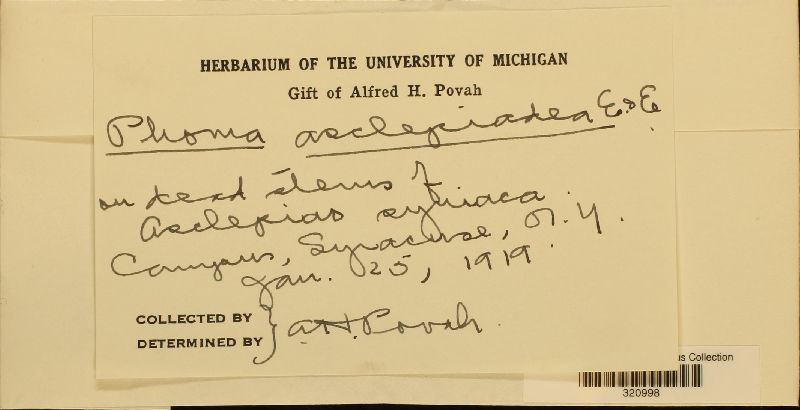 HERBARIUM OF THE UNIVERSITY OF MICHIGAN
Gift of Alfred H. Povah
Phoma asclepiadea E. & E.
on dead stems of
Asclepias syriaca
Campus, Syracuse, N.Y.
Jan. 25, 1919
COLLECTED BY
DETERMINED BY
A.H. Povah
us Collection
320998